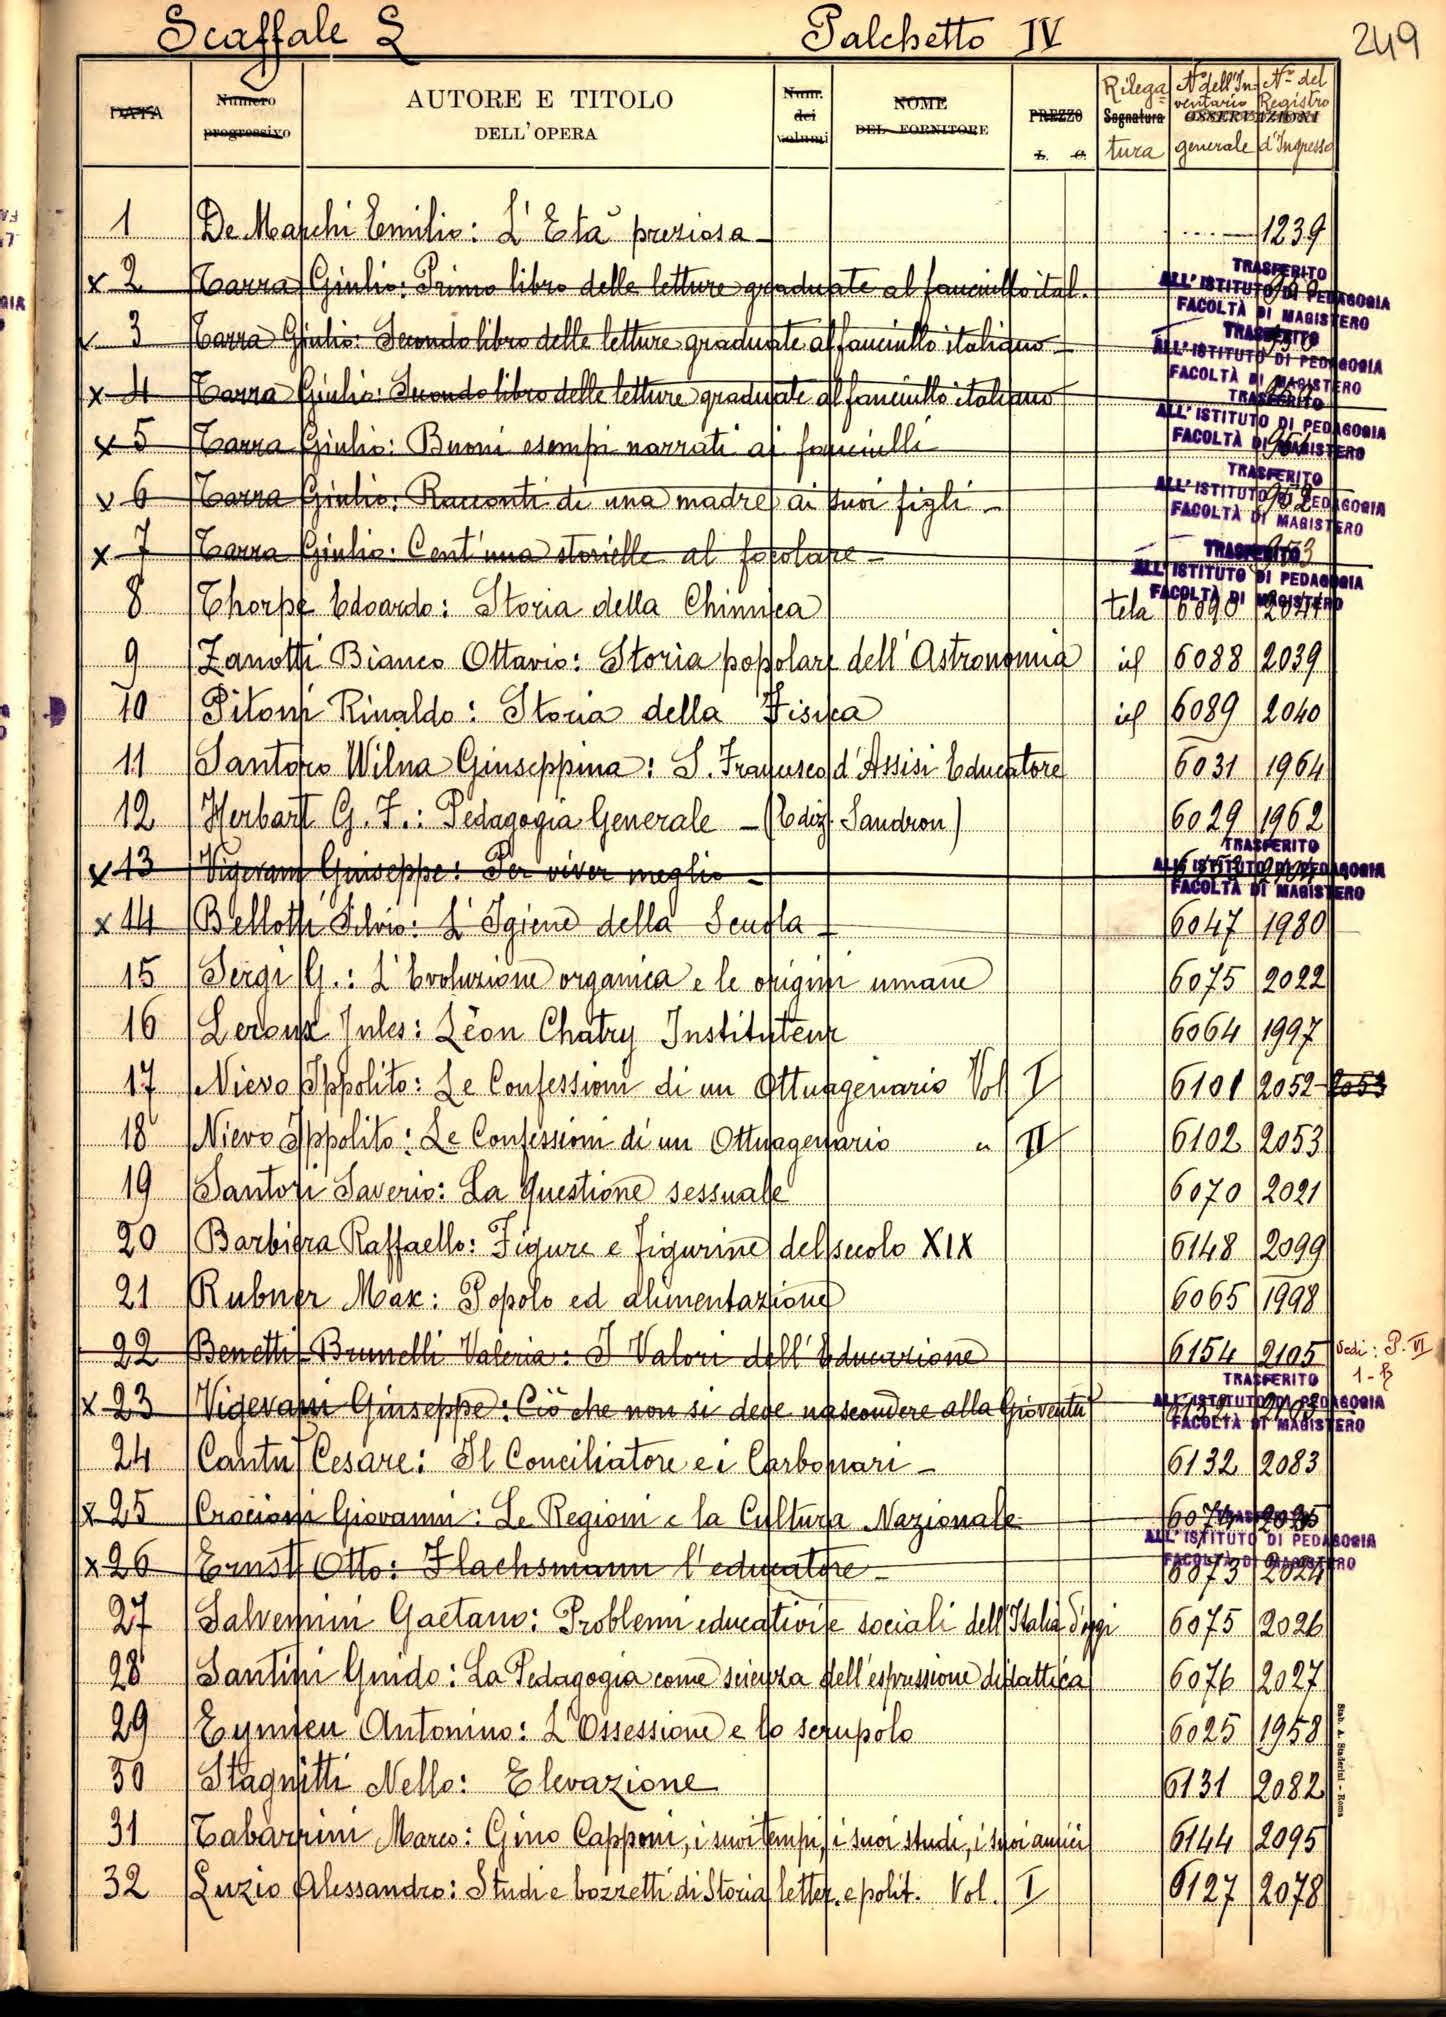 Scaffale L Palchetto IV 249
DATA Numero progressivo AUTORE E TITOLO DELL'OPERA Num. dei volumi NOME DEL FORNITORE PREZZO L. C. Rilega= Segnatura tura N° dell'In= ventario generale OSSERVAZIONI N° del Registro d'Ingresso
1 De Marchi Emilio: L'Età preziosa - 1239
x 2 Tarra Giulio: Primo libro delle letture graduate al fanciullo ital.
TRASFERITO
ALL'ISTITUTO DI PEDAGOGIA
FACOLTÀ DI MAGISTERO
3 Tarra Giulio: Secondo libro delle letture graduate al fanciullo italiano -
TRASFERITO
ALL'ISTITUTO DI PEDAGOGIA
FACOLTÀ DI MAGISTERO
x 4 Tarra Giulio: Secondo libro delle letture graduate al fanciullo italiano
TRASFERITO
ALL'ISTITUTO DI PEDAGOGIA
FACOLTÀ DI MAGISTERO
x 5 Tarra Giulio: Buoni esempi narrati ai fanciulli 951
x 6 Tarra Giulio: Racconti di una madre ai suoi figli - 952
TRASFERITO
ALL'ISTITUTO DI PEDAGOGIA
FACOLTÀ DI MAGISTERO
x 7 Tarra Giulio: Cent'una storielle al focolare - 953
TRASFERITO
ALL'ISTITUTO DI PEDAGOGIA
FACOLTÀ DI MAGISTERO
8 Thorpe Edoardo: Storia della Chimica tela 6090 2041
9 Zanotti Bianco Ottavio: Storia popolare dell'Astronomia id 6088 2039
10 Pitoni Rinaldo: Storia della Fisica id 6089 2040
11 Santoro Wilna Giuseppina: S. Francesco d'Assisi Educatore 6031 1964
12 Herbart G. F.: Pedagogia Generale - (Ediz. Sandron) 6029 1962
x 13 Vigevani Giuseppe: Per viver meglio -
TRASFERITO
ALL'ISTITUTO DI PEDAGOGIA
FACOLTÀ DI MAGISTERO
x 14 Bellotti Silvio: L'Igiene della Scuola - 6047 1980
15 Sergi G.: L'Evoluzione organica e le origini umane 6075 2022
16 Leroux Jules: Lèon Chatry Instituteur 6064 1997
17 Nievo Ippolito: Le Confessioni di un Ottuagenario Vol I 6101 2052-2053
18 Nievo Ippolito: Le Confessioni di un Ottuagenario " II 6102 2053
19 Santori Saverio: La questione sessuale 6070 2021
20 Barbiera Raffaello: Figure e figurine del secolo XIX 6148 2099
21 Rubner Max: Popolo ed alimentazione 6065 1998
22 Benetti-Brunelli Valeria: I Valori dell'Educazione 6154 2105 Vedi: P. VI
1-
x 23 Vigevani Giuseppe: Ciò che non si deve nascondere alla Gioventù
TRASFERITO
ALL'ISTITUTO DI PEDAGOGIA
FACOLTÀ DI MAGISTERO
24 Cantù Cesare: Il Conciliatore e i Carbonari - 6132 2083
x 25 Crocioni Giovanni: Le Regioni e la Cultura Nazionale 6074 2025
TRASFERITO
ALL'ISTITUTO DI PEDAGOGIA
FACOLTÀ DI MAGISTERO
x 26 Ernst Otto: Flachsmann l'educatore - 6073 2024
27 Salvemini Gaetano: Problemi educativi e sociali dell'Italia d'oggi 6075 2026
28 Santini Guido: La Pedagogia come scienza dell'espressione didattica 6076 2027
29 Eymieu Antonino: L'Ossessione e lo scrupolo 6025 1958
30 Stagnitti Nello: Elevazione 6131 2082
31 Tabarrini Marco: Gino Capponi, i suoi tempi, i suoi studi, i suoi amici 6144 2095
32 Luzio Alessandro: Studi e bozzetti di Storia letter. e polit. Vol. I 6127 2078
Stab. A. Staderini - Roma